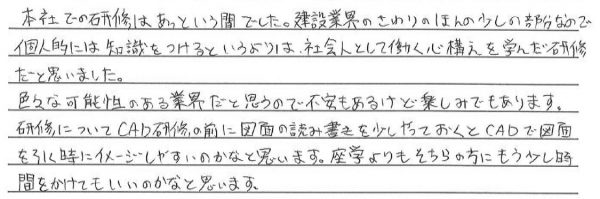 本社での研修はあっという間でした。建設業界のさわりのほんの少しの部分なので
個人的には知識をつけるというよりは、社会人として働く心構えを学んだ研修
だと思いました。
色々な可能性のある業界だと思うので不安もあるけど楽しみでもあります。
研修についてCAD研修の前に図面の読み書きを少しやっておくとCADで図面
を引く時にイメージしやすいのかなと思います。座学よりもそちらの方にもう少し時
間をかけてもいいのかなと思います。